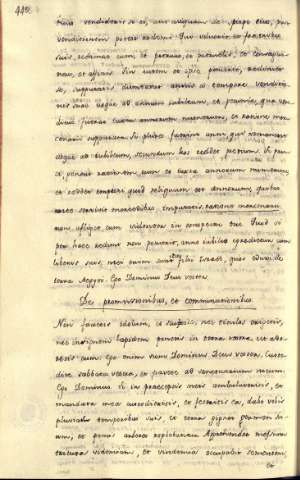 440.
tuus vendiderit se ei, aut cuiquam de stirpe eius, post
venditionem potest redimi. Qui voluerit ex fratribus
suis, redimet eum, et patruus, et patruelis, et consangui-
neus, et affinis. Sin autem et ipse potuerit, redimet
se, supputatis dumtaxat annis a tempore venditio-
nis suae usque ad annum iubilaeum, et pecunia, qua ven-
ditus fuerat iuxta annorum numerum, et rationem mer-
cenarii supputata. Si plures fuerint anni, qui remanent
usque ad iubilaeum, secundum hos reddet et pretium. Si pau-
ci, ponet rationem cum eo iuxta annorum numerum,
et reddet emptori quod reliquum est annorum, quibus
ante servivit mercedibus imputatis,
non affliget eum violenter in conspectu tuo. Quod si
per haec redimi non potuerit, anno iubilaeo egredietur cum
liberis suis, mei enim sunt filii Israel, quos eduxi de
terra Aegypti. Ego Dominus Deus vester.
De promissionibus, et comminationibus.
Non facietis idolum, et sculptile, nec titulos erigetis,
nec insignem lapidem ponetis in terra vestra, ut ado-
retis eum. Ego enim sum Dominus Deus vester. Custo-
dite sabbata vestra, et pavete ad sanctuarium meum.
Ego Dominus. Si in praeceptis meis ambulaveritis, et
mandata mea custodieritis, et feceritis ea, dabo vobis
pluvias temporibus suis, et terra gignet germen su-
um, et pomis arbores replebuntur. Apprehendet messium
tritura vindemiam, et vindemia occupabit sementem,
et